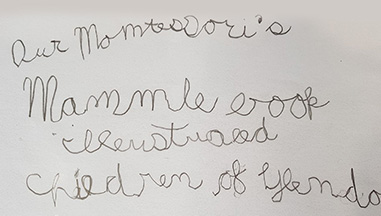 Our Montessori's
Mammle book
illeustraed
children of Glendo